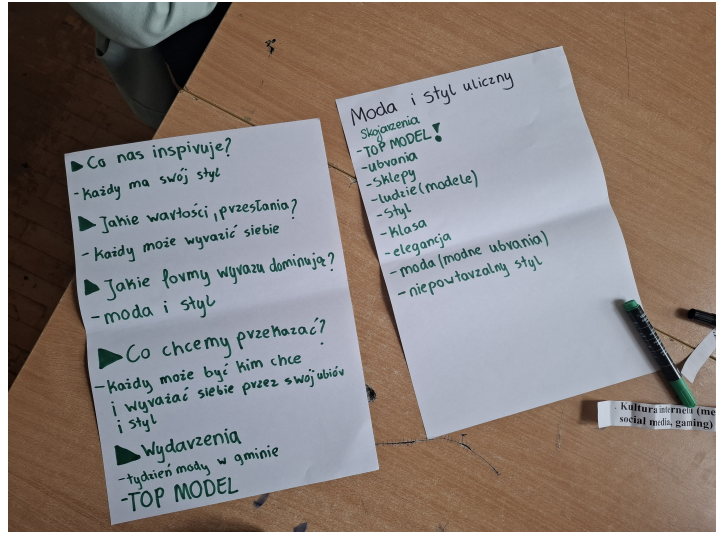 ▶ Co nas inspiruje?
- Każdy ma swój styl
▶ Jakie wartości, przesłania?
- Każdy może wyrazić siebie
▶ Jakie formy wyrazu dominują?
- moda i styl
▶ Co chcemy przekazać?
- Każdy może być kim chce
i wyrażać siebie przez swój ubiór
i styl
▶ Wydarzenia
- tydzień mody w gminie
- TOP MODEL
Moda i styl uliczny
Skojarzenia
- TOP MODEL!
- ubrania
- Sklepy
- ludzie (modele)
- Styl
- Klasa
- elegancja
- moda (modne ubrania)
- niepowtarzalny styl
. Kultura internetu (me
social media, gaming)